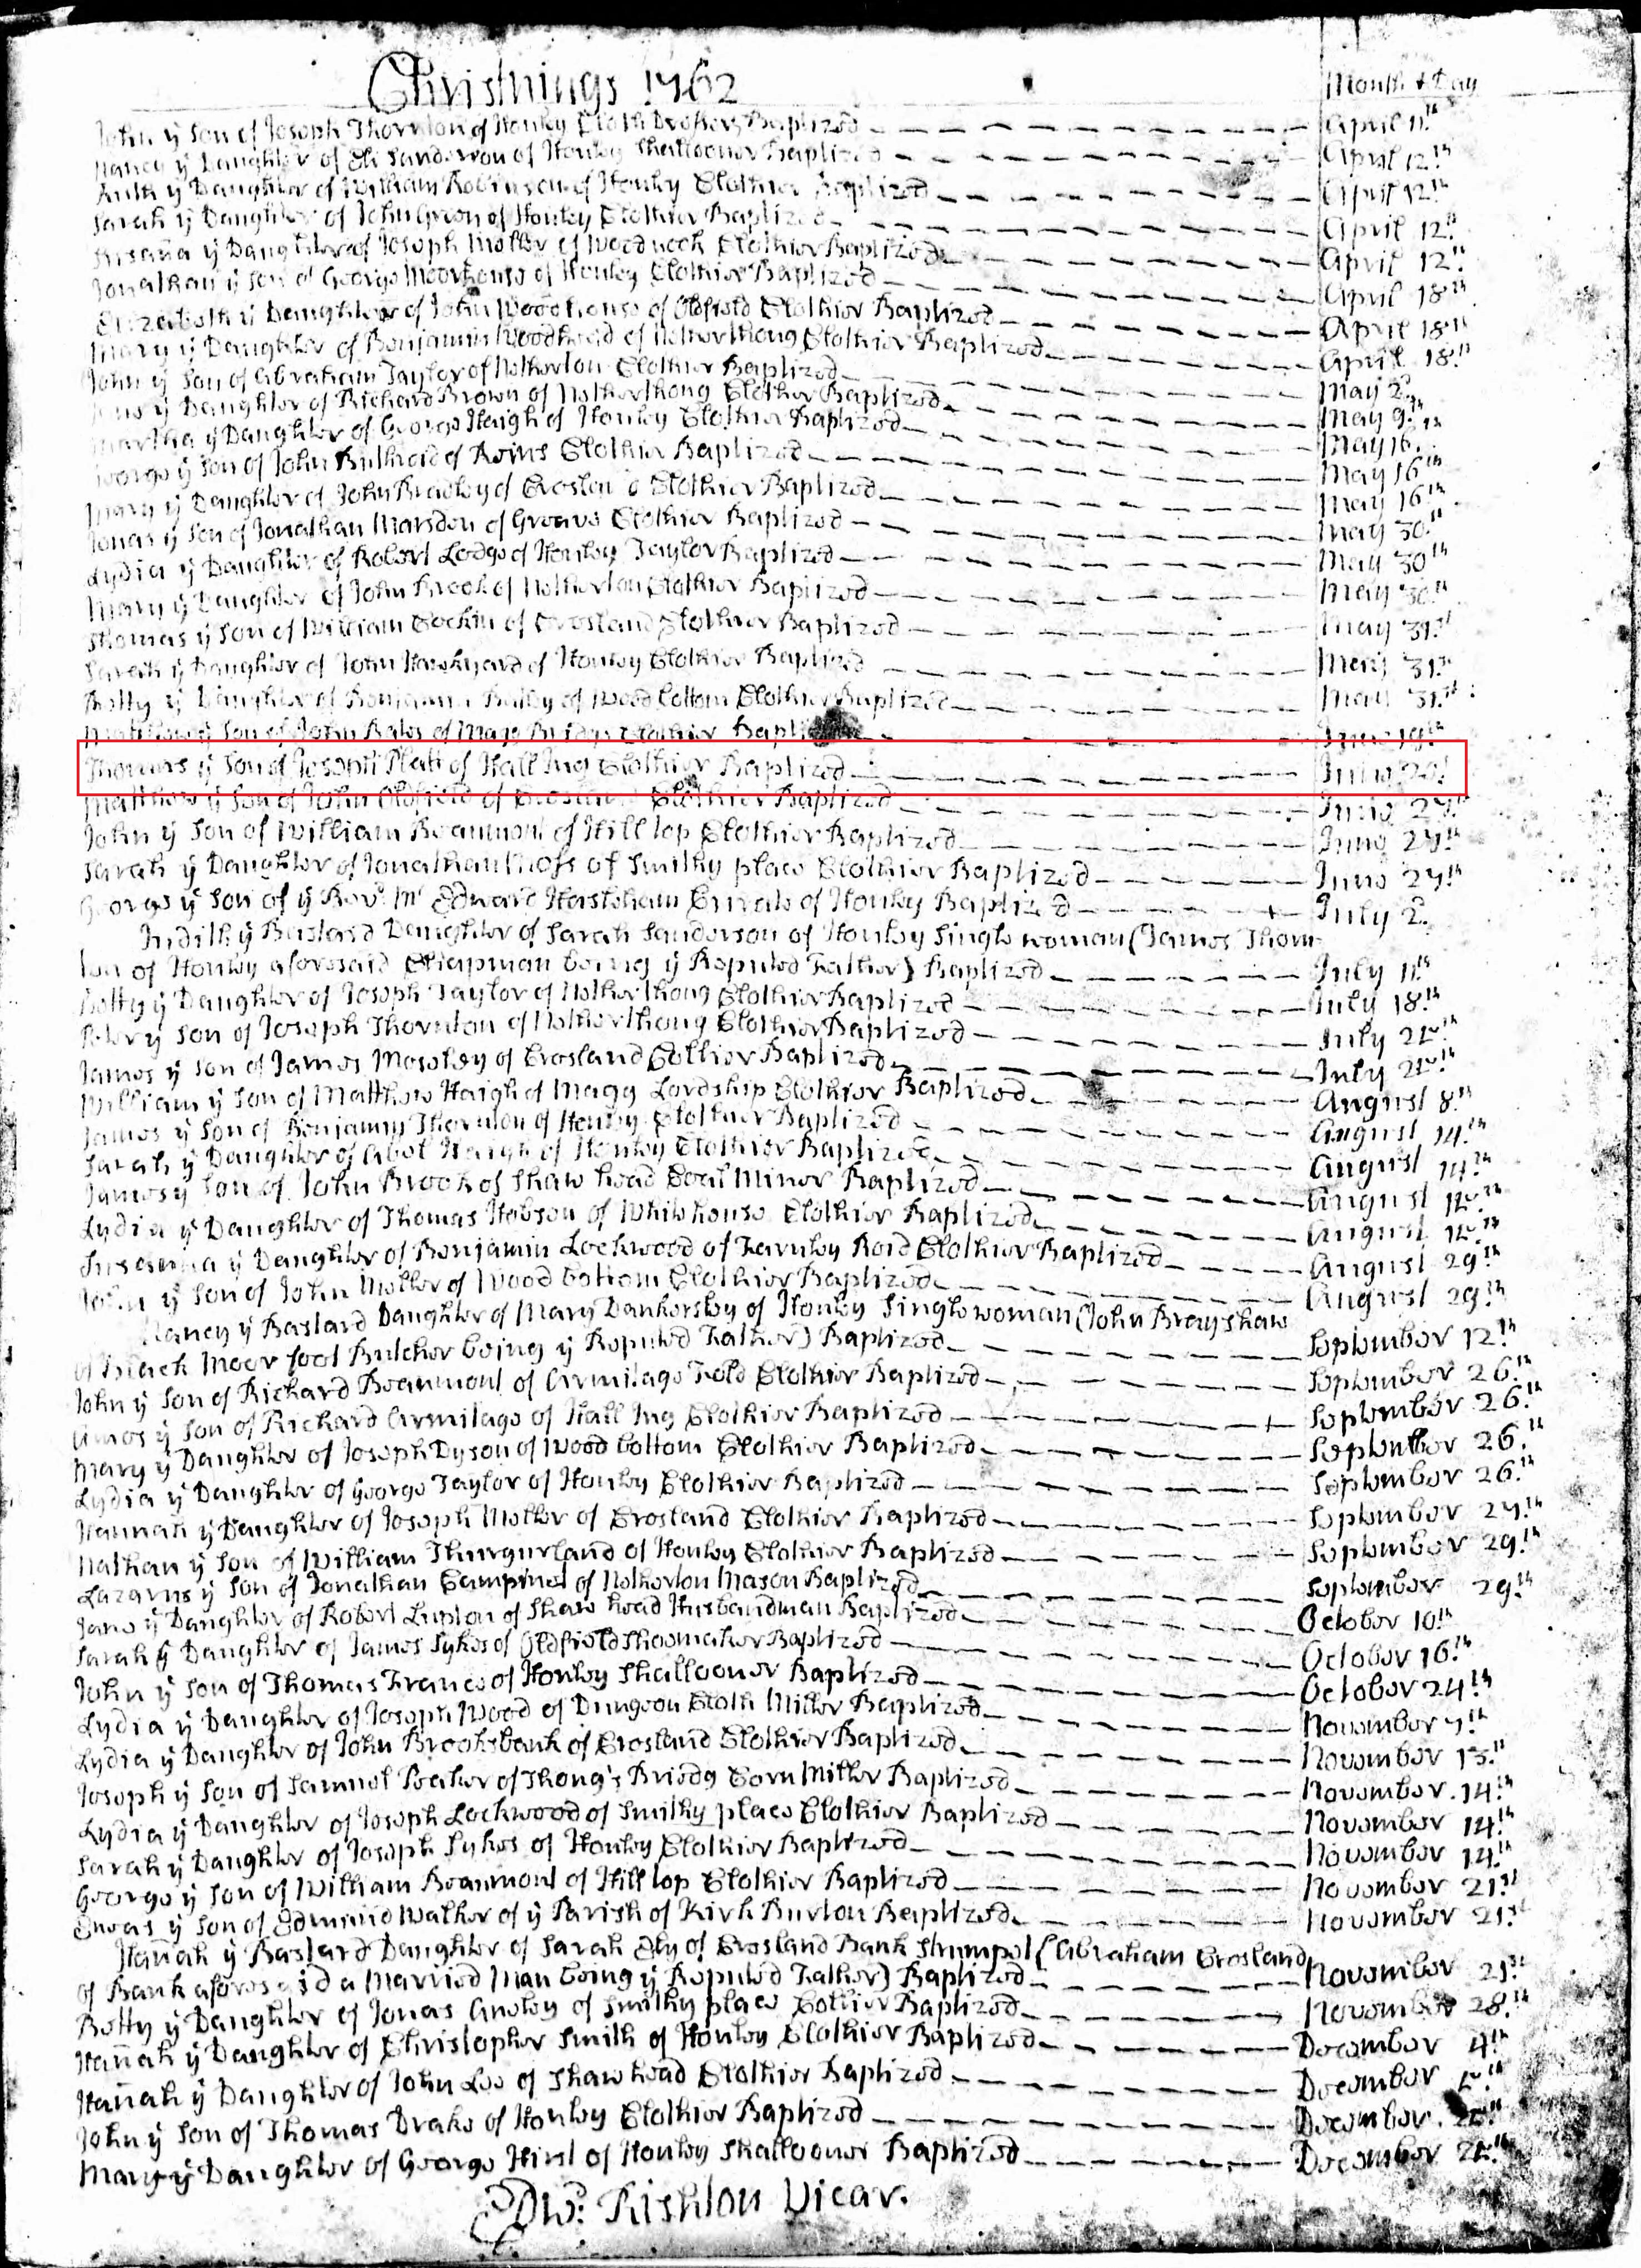 Christnings 1762
Month & Day
John ÿ Son of Joseph Thornton of Honley Cloth Drosser Baptized April 11.th
Nancy ÿ Daughter of Eli Sanderson of Honley Shalloonor Baptized April 12.th
Ruth ÿ Daughter of William Robinson of Honley Clothier Baptized April 12.th
Sarah ÿ Daughter of John Green of Honley Clothier Baptized April 12.th
Susaña ÿ Daughter of Joseph Mellor of Wood nook Clothier Baptized April 12.th
Jonathan ÿ Son of George Moorhouse of Honley Clothier Baptized April 18.th
Elizabeth ÿ Daughter of John Woodhouse of Oldfield Clothier Baptized April 18.th
Mary ÿ Daughter of Benjamin Woodhead of Netherthong Clothier Baptized April 18.th
John ÿ Son of Abraham Taylor of Netherton Clothier Baptized May 2.d
ÿ Daughter of Richard Brown of Netherthong Clothier Baptized May 9.th
Martha ÿ Daughter of George Haigh of Honley Clothier Baptized May 16.th
George ÿ Son of John of Roins Clothier Baptized May 16.th
Mary ÿ Daughter of John Bradley of Crosland Clothier Baptized May 16.th
Jonas ÿ Son of Jonathan Marsden of Greave Clothier Baptized May 30.th
Lydia ÿ Daughter of Robert Lodge of Honley Taylor Baptized May 30.th
Mary ÿ Daughter of John Brook of Netherton Clothier Baptized May 30.th
Thomas ÿ Son of William Cockin of Crosland Clothier Baptized May 31.st
Sarah ÿ Daughter of John Hawkyard of Honley Clothier Baptized May 31.st
Betty ÿ Daughter of Benjamin Batley of Wood bottom Clothier Baptized May 31.st
Matthew ÿ Son of John Bates of Magg Bridge Clothier Baptized June 19.th
Thomas ÿ Son of Joseph Platt of Hall Ing Clothier Baptized June 20.th
Matthew ÿ Son of John Oldfield of Crosland Clothier Baptized June 27.th
John ÿ Son of William Beaumont of Hill top Clothier Baptized June 27.th
Sarah ÿ Daughter of Jonathan of Smithy place Clothier Baptized June 27.th
George ÿ Son of ÿ Rev.d Mr Edward Hasleham Curate of Honley Baptized July 2.d
Judith ÿ Bastard Daughter of Sarah Sanderson of Honley Single woman (James Thorn-
ton of Honley aforesaid Chapman being ÿ Reputed Father) Baptized July 11.th
Betty ÿ Daughter of Joseph Taylor of Netherthong Clothier Baptized July 18.th
Peter ÿ Son of Joseph Thornton of Netherthong Clothier Baptized July 25.th
James ÿ Son of James Moseley of Crosland Collier Baptized July 25.th
William ÿ Son of Matthew Haigh of Magg Lordship Clothier Baptized August 8.th
James ÿ Son of Benjamin Thornton of Honley Clothier Baptized August 14.th
Sarah ÿ Daughter of Abel Haigh of Honley Clothier Baptized August 14.th
James ÿ Son of John Brook of Shaw head Coal Miner Baptized August 15.th
Lydia ÿ Daughter of Thomas Hobson of Whitehouse Clothier Baptized August 15.th
Susanna ÿ Daughter of Benjamin Lockwood of Farnley Roid Clothier Baptized August 29.th
John ÿ Son of John Mellor of Wood bottom Clothier Baptized August 29.th
Nancy ÿ Bastard Daughter of Mary Dankersley of Honley Single woman (John Brayshaw
of Black Moor foot Butcher being ÿ Reputed Father) Baptized September 12.th
John ÿ Son of Richard Beaumont of Armitage Fold Clothier Baptized September 26.th
Amos ÿ Son of Richard Armitage of Hall Ing Clothier Baptized September 26.th
Mary ÿ Daughter of Joseph Dyson of Wood bottom Clothier Baptized September 26.th
Lydia ÿ Daughter of George Taylor of Honley Clothier Baptized September 26.th
Hannah ÿ Daughter of Joseph Mellor of Crosland Clothier Baptized September 27.th
Nathan ÿ Son of William Thurgurland of Honley Clothier Baptized September 29.th
Lazarus ÿ Son of Jonathan Campinet of Netherton Mason Baptized September 29.th
Jane ÿ Daughter of Robert Lupton of Shaw head Husbandman Baptized October 10.th
Sarah ÿ Daughter of James Sykes of Oldfield Shoomaker Baptized October 16.th
John ÿ Son of Thomas France of Honley Shalloonor Baptized October 24.th
Lydia ÿ Daughter of Joseph Wood of Dungeon Cloth Miller Baptized November 7.th
Lydia ÿ Daughter of John Brooksbank of Crosland Clothier Baptized November 13.th
Joseph ÿ Son of Samuel Peaker of Thong's Bridg Corn Miller Baptized November 14.th
Lydia ÿ Daughter of Joseph Lockwood of Smithy place Clothier Baptized November 14.th
Sarah ÿ Daughter of Joseph Sykes of Honley Clothier Baptized November 14.th
George ÿ Son of William Beaumont of Hill top Clothier Baptized November 21.st
Eneas ÿ Son of Edmund Walker of ÿ Parish of Kirk Burton Baptized November 21.st
Hañah ÿ Bastard Daughter of Sarah Ely of Crosland Bank Strumpet (Abraham Crosland
of Bank aforesaid a Married Man being ÿ Reputed Father) Baptized November 21.st
Betty ÿ Daughter of Jonas Aneley of Smithy place Collier Baptized November 28.th
Hañah ÿ Daughter of Christopher Smith of Honley Clothier Baptized December 4.th
Hañah ÿ Daughter of John Lee of Shaw head Clothier Baptized December 5.th
John ÿ Son of Thomas Drake of Honley Clothier Baptized December 25.th
Mary ÿ Daughter of George Hirst of Honley Shalloonor Baptized December 25.th
Edw.d Rishton Vicar.